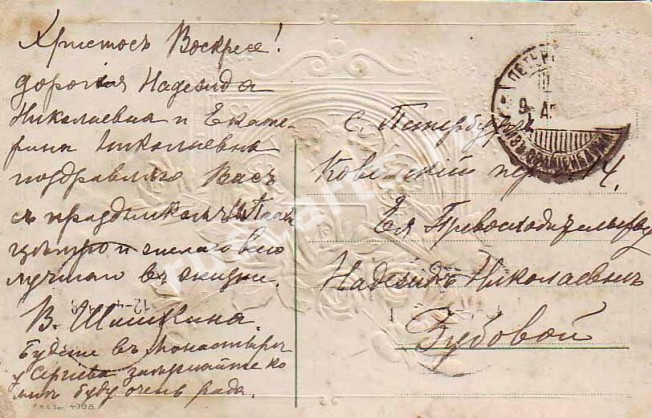 Христосъ Воскресе!
дорогая Надежда
Николаевна и Екате-
рина Николаевна
поздравляю Васъ
съ праздникомъ
цѣлую и желаю всего
лучшаго въ жизни.
В. Шишкина.
Будете въ монастырѣ
у Сергіева заѣзжайте ко
мнѣ буду очень рада.
С. Петербургъ
Ковенскій пер. 14.
Ея Превосходительству
Надеждѣ Николаевнѣ
Зубовой